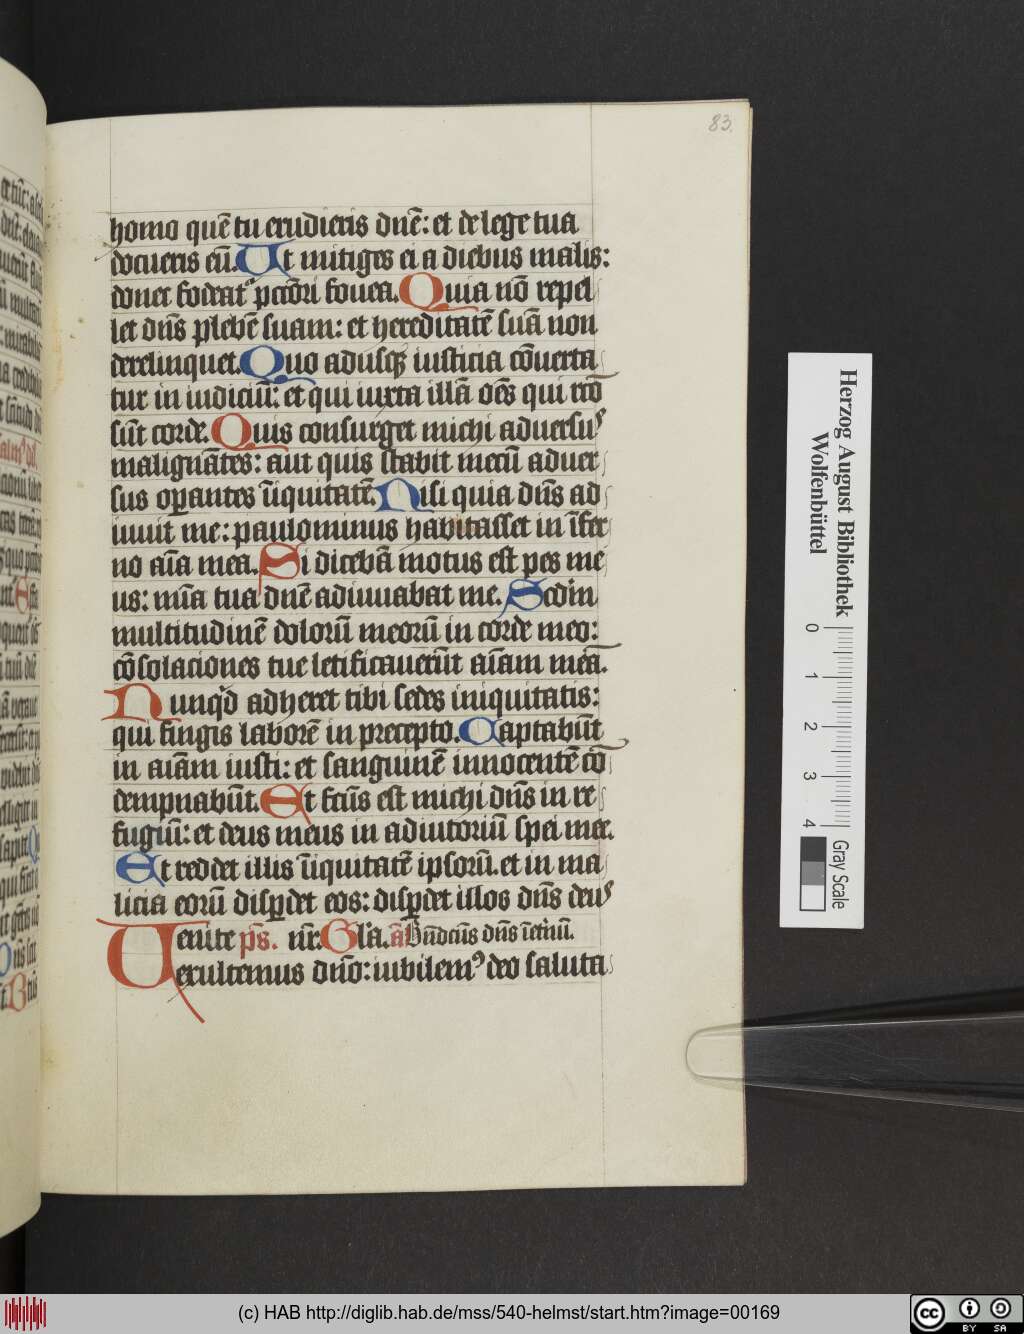 83.
homo quē tu erudieris dnē: et de lege tua
docueris eū. Ut mitiges ei a diebus malis:
donec fodeat᷑ pctōri fouea. Quia nō repel
let dn̄s plebē suam: et hereditatē suā non
derelinquet. Quo adusqꝫ iusticia cōuerta
tur in iudiciū: et qui iuxta illā oēs qui rcō
sūt corde. Quis consurget michi aduersuꝰ
malignātes: aut quis stabit mecū aduer
sus oꝑantes īiquitatē. Nisi quia dn̄s ad
iuuit me: paulominus habitasset in īfer
no aīa mea. Si dicebā motus est pes me
us: mīa tua dnē adiuuabat me. Scdm̄
multitudinē dolorū meorū in corde meo:
cōsolaciones tue letificauerūt aīam meā.
Nunqͥd adheret tibi sedes iniquitatis:
qui fingis laborē in precepto. Captabūt
in aīam iusti: et sanguinē innocentē cō
dempnabūt. Et fcūs est michi dn̄s in re
fugiū: et deus meus in adiutoriū spei mee.
Et reddet illis īiquitatē ipsorū. et in ma
licia eorū disꝑdet eos: disꝑdet illos dn̄s deuꝰ
Uenite ps̄. nr̄. Glīa. ā Bn̄dcūs dn̄s īet̄nū.
exultemus dn̄o: iubilemꝰ deo saluta
Herzog August Bibliothek
Wolfenbüttel
0 1 2 3 4
Gray Scale
(c) HAB http://diglib.hab.de/mss/540-helmst/start.htm?image=00169
cc BY SA